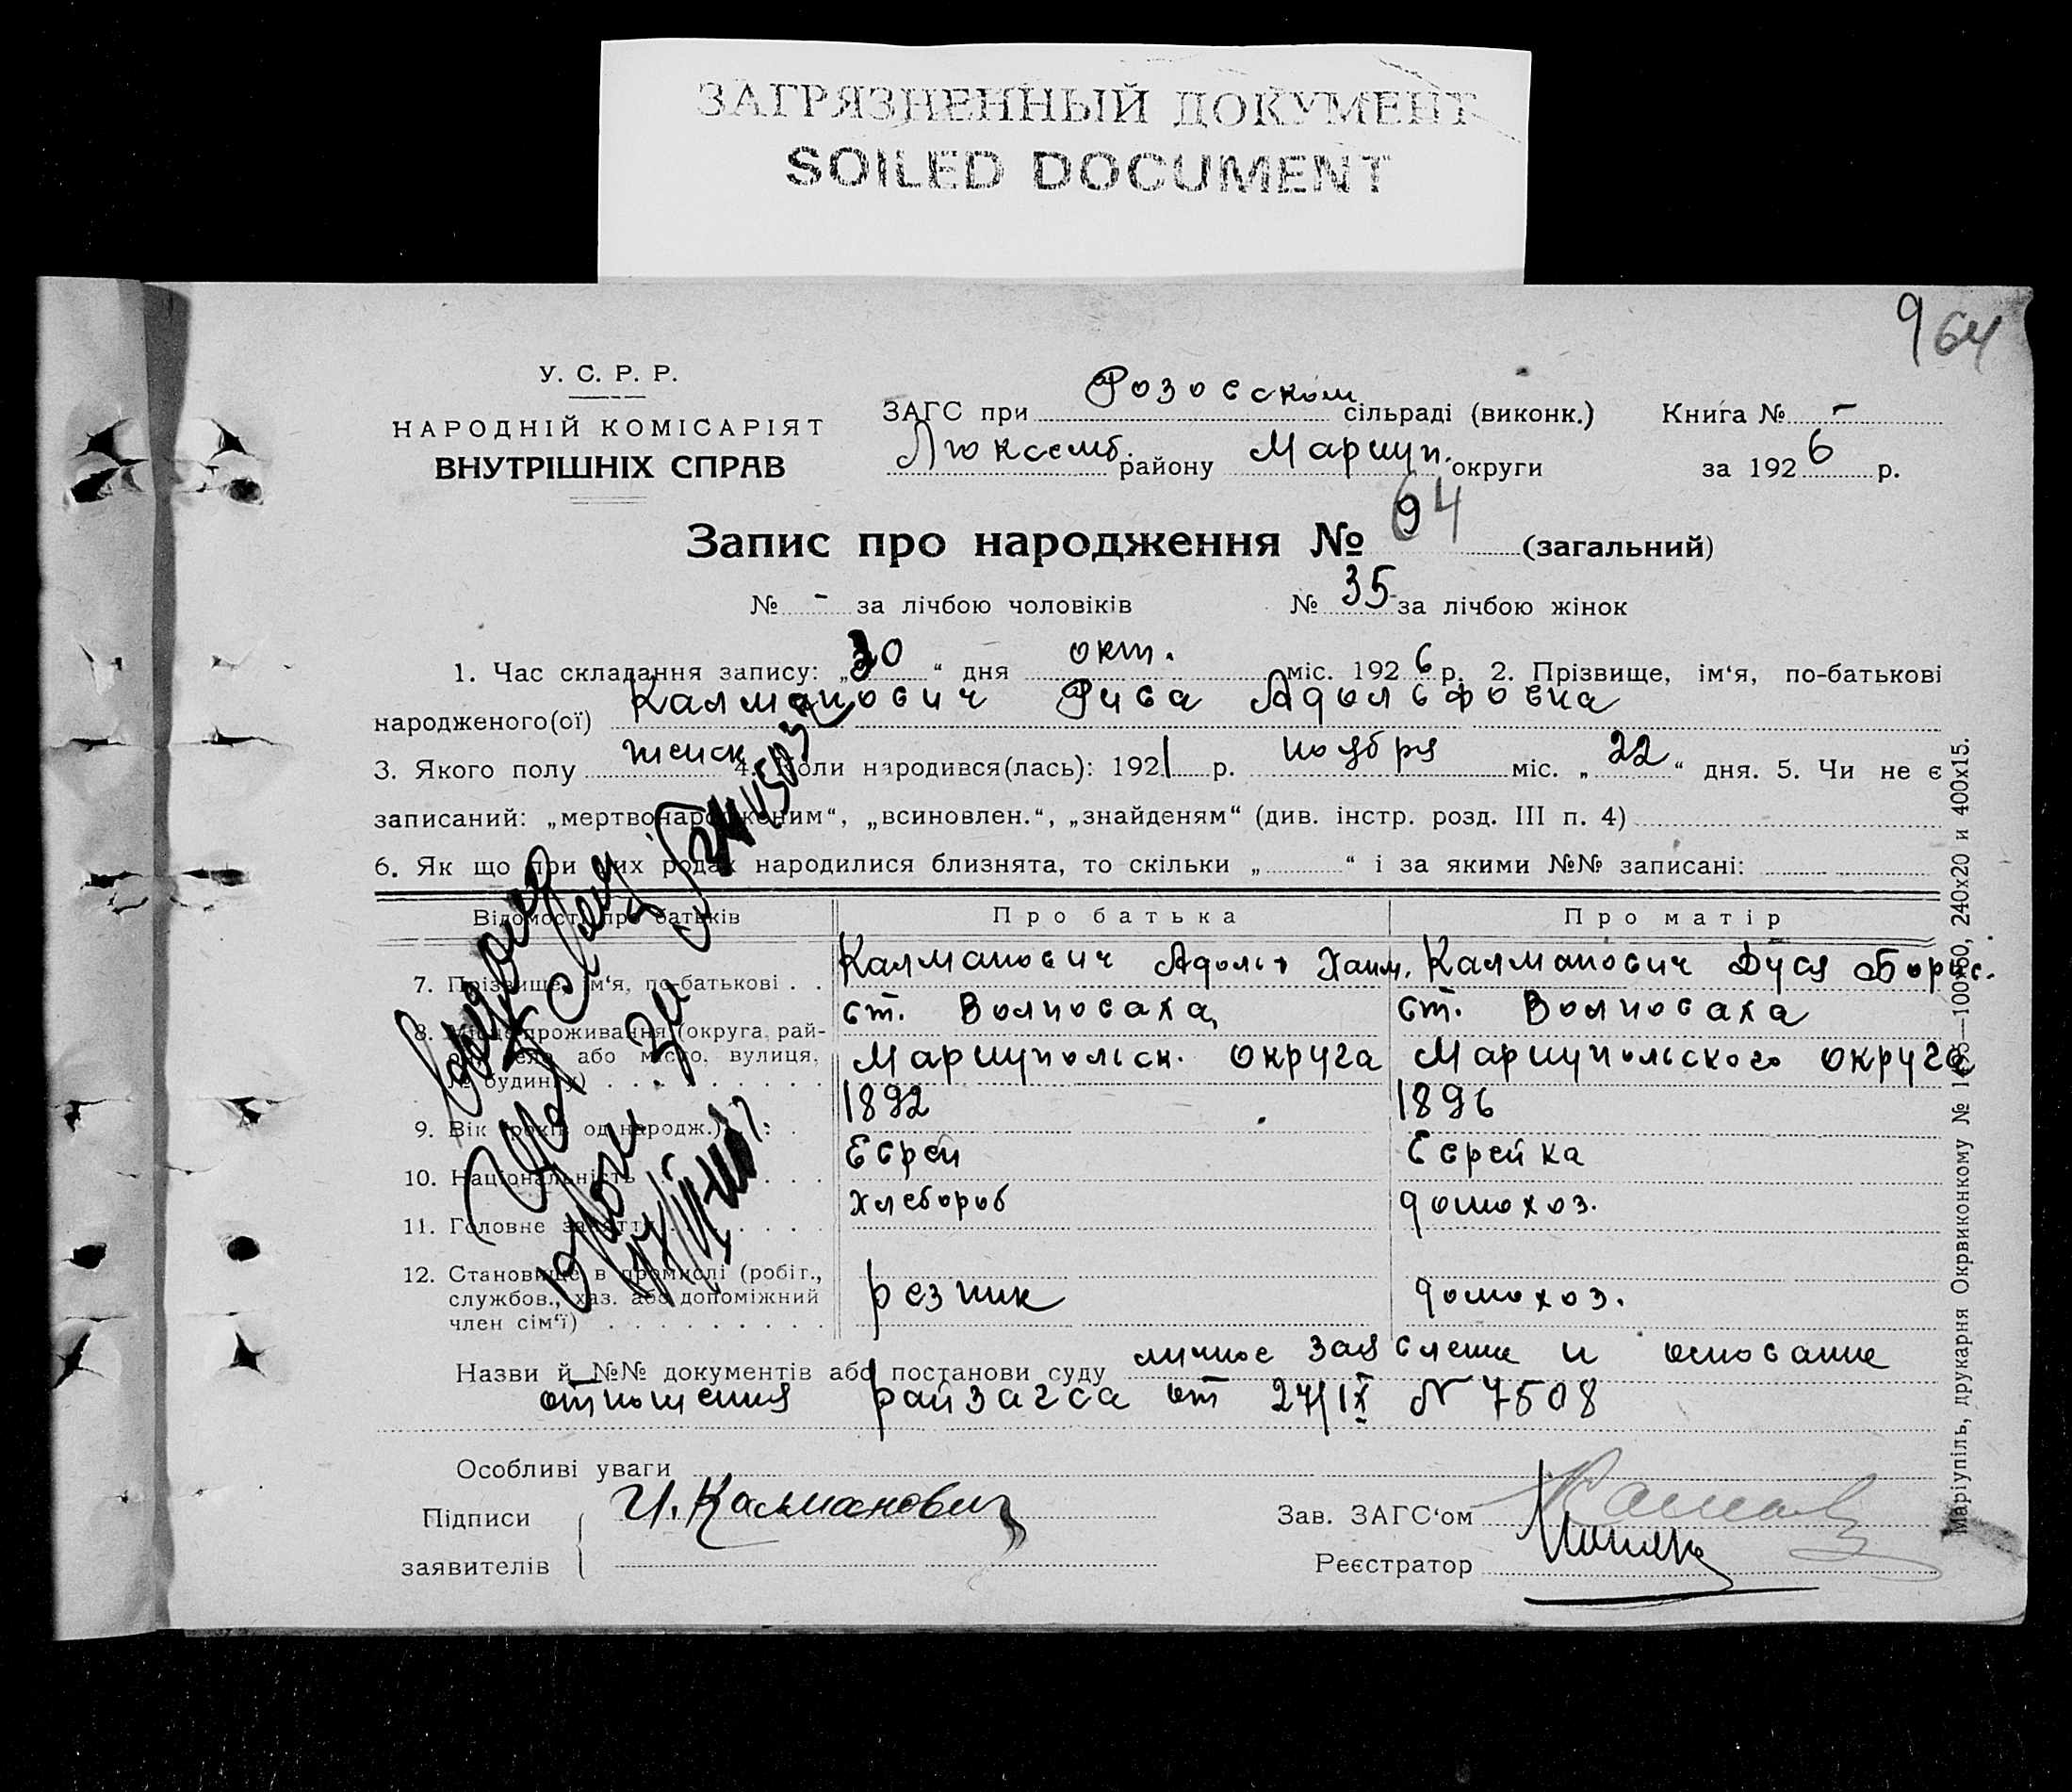 ЗАГРЯЗНЕННЫЙ ДОКУМЕНТ
SOILED DOCUMENT
9 64
У. С. Р. Р.
НАРОДНІЙ КОМІСАРІЯТ
ВНУТРІШНІХ СПРАВ
ЗАГС при Розовском сільраді (виконк.) Книга № -
Люксемб. району Мариуп. округи за 1926 р.
Запис про народження № 64 (загальний)
№ - за лічбою чоловіків № 35 за лічбою жінок
1. Час складання запису: „30“ дня окт. міс. 1926 р. 2. Прізвище, ім‘я, по-батькові
народженого(ої) Калманович Рива Адольфовна
3. Якого полу женск 4. Коли народився(лась): 1921 р. ноября міс. „22“ дня. 5. Чи не є
записаний: „мертвонародженим“, „всиновлен.“, „знайденям“ (див. інстр. розд. III п. 4)
6. Як що при цих родах народилися близнята, то скільки „ “ і за якими №№ записані:
Відомості про батьків Про батька Про матір
7. Прізвище, ім‘я, по-батькові . . Калманович Адольф Хаим. Калманович Дуся Борис.
8. Місце проживання (округа, рай- ст. Волноваха, ст. Волноваха
село або місто, вулиця, Мариупольск. округа Мариупольского округа
№ будинку)
9. Вік (років од народж.) 1892 1896
10. Національність Еврей Еврейка
11. Головне заняття Хлебороб домохоз.
12. Становище в промислі (робіт.,
службов., хаз. або допоміжний резник домохоз.
член сім‘ї)
Назви й №№ документів або постанови суду личное заявление и основание
отношения райзагса от 27/IX N 7508
Особливі уваги
Підписи И. Калманович Зав. ЗАГС‘ом
заявителів Реєстратор
Маріупіль, друкарня Окрвиконкому № 240х20 и 400х15.